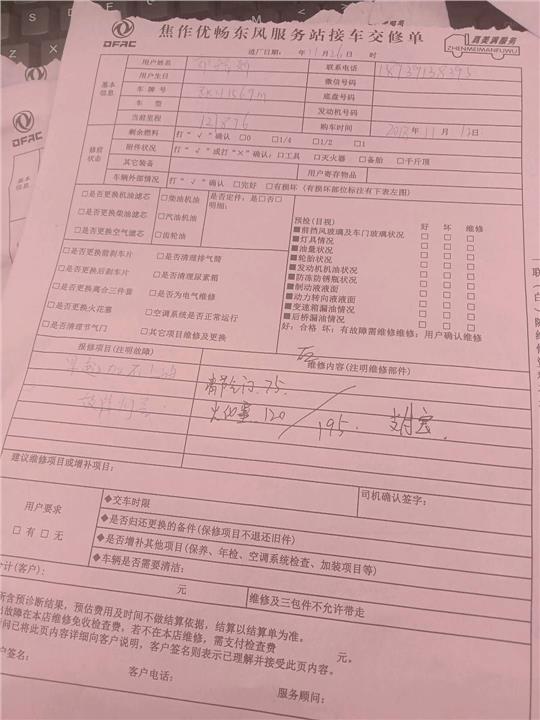 DFAC
焦作优畅东风服务站接车交修单
真美满服务
ZHENMEIMANFUWU
进厂日期: 年 11 月 26 日 时
基本信息
用户姓名
联系电话
用户生日
微信号码
车 牌 号
底盘号码
车 型
发动机号码
当前里程 121876
购车时间 年 11 月 日
修前状态
剩余燃料 打“√”确认 □0 □1/4 □1/2 □1
附件状况 打“√”或打“×”确认: □工具 □灭火器 □备胎 □千斤顶
其它装备
用户寄存物品
车辆外部情况 打“√”确认 □完好 □有损坏 (有损坏部位标注有下表左图)
□是否更换机油滤芯 □柴油机油 是否定件: 是□否□
明细:
□是否更换柴油滤芯 □汽油机油
□是否更换空气滤芯 □齿轮油
□是否更换前刹车片 □是否清理排气筒
□是否更换后刹车片 □是否清理尿素箱
□是否更换离合三件套 □是否为电气维修
□是否更换火花塞 □空调系统是否正常运行
□是否清理节气门 □其它项目维修及更换
预检(目视) 好 坏 维修
■前挡风玻璃及车门玻璃状况 □ □ □
■灯具情况 □ □ □
■油量状况 □ □ □
■轮胎状况 □ □ □
■发动机机油状况 □ □ □
■防冻防锈瓶状况 □ □ □
■制动液液面 □ □ □
■动力转向液液面 □ □ □
■变速箱漏油情况 □ □ □
■后桥漏油情况 □ □ □
好: 合格 坏: 有故障需维修维修: 用户确认维修
报修项目(注明故障)
维修内容(注明维修部件)
清节气门 75
火花塞 120
195. 支付宝.
建议维修项目或增补项目:
用户要求
□ 有 □ 无
◆交车时限
司机确认签字:
◆是否归还更换的备件(保修项目不退还旧件)
◆是否增补其他项目(保养、年检、空调系统检查、加装项目等)
◆车辆是否需要清洁:
计(客户): 元
维修及三包件不允许带走
所含预诊断结果, 预估费用及时间不做结算依据, 结算以结算单为准。
故障在本店维修免收检查费, 若不在本店维修, 需支付检查费 元。
间已将此页内容详细向客户说明, 客户签名则表示已理解并接受此页内容。
户签名:
客户电话:
服务顾问: